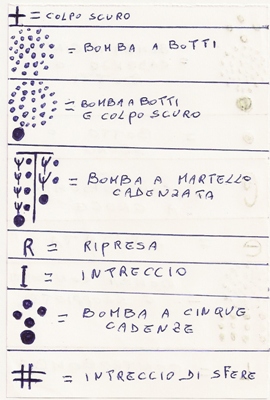 + = COLPO SCURO
= BOMBA A BOTTI
= BOMBA A BOTTI
E COLPO SCURO
= BOMBA A MARTELLO
CADENZATA
R = RIPRESA
I = INTRECCIO
= BOMBA A CINQUE
CADENZE
# = INTRECCIO DI SFERE